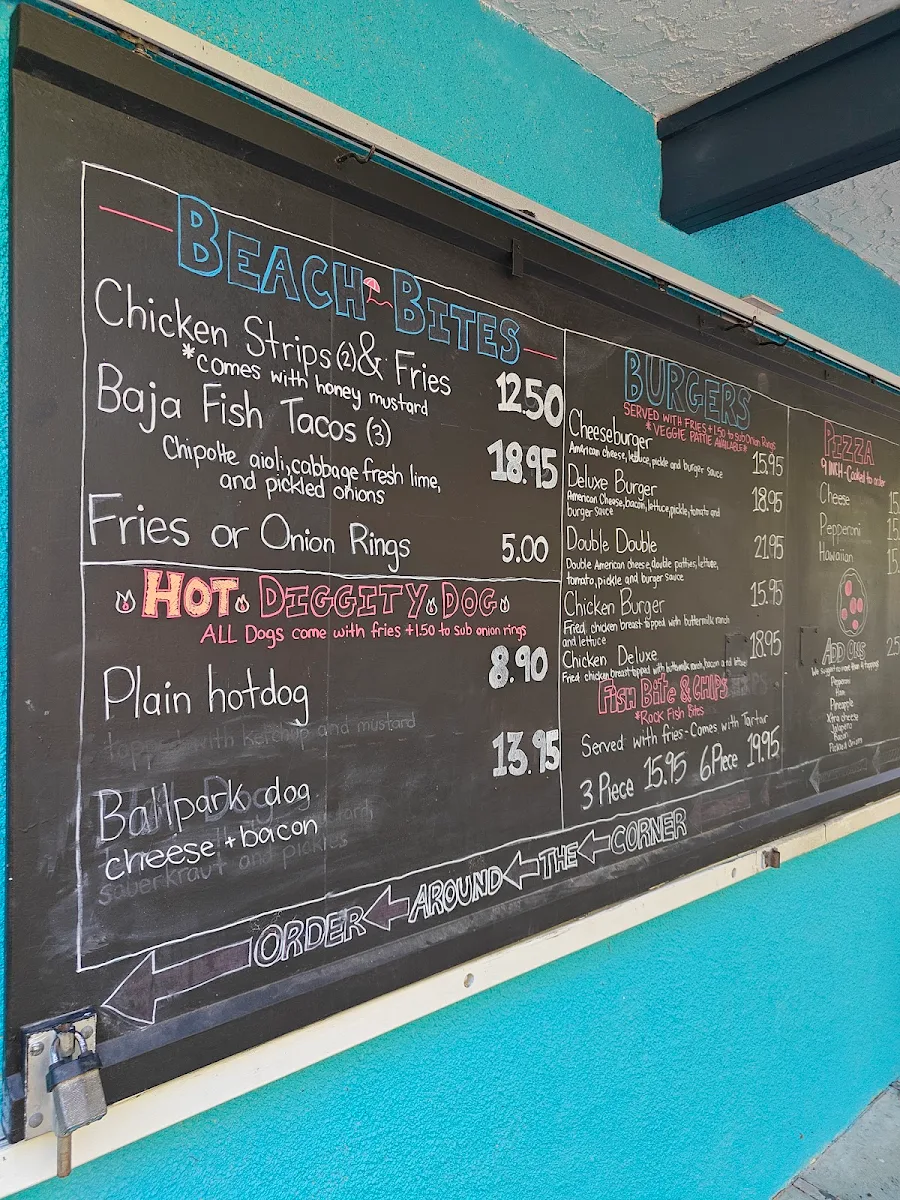 BEACH BITES
Chicken Strips (2) & Fries 12.50
*comes with honey mustard
Baja Fish Tacos (3) 18.95
Chipotle aioli, cabbage fresh lime,
and pickled onions
Fries or Onion Rings 5.00
HOT DIGGITY DOG
ALL Dogs come with fries +1.50 to sub onion rings
Plain hotdog 8.90
topped with ketchup and mustard
Ballpark dog 13.95
cheese + bacon
sauerkraut and pickles
BURGERS
SERVED WITH FRIES +1.50 to sub Onion Rings
*VEGGIE PATTIE AVAILABLE*
Cheeseburger 15.95
American cheese, lettuce, pickle and burger sauce
Deluxe Burger 18.95
American Cheese, bacon, lettuce, pickle, tomato and
burger sauce
Double Double 21.95
Double American cheese, double patties, lettuce,
tomato, pickle and burger sauce
Chicken Burger 15.95
Fried chicken breast topped with buttermilk ranch
and lettuce
Chicken Deluxe 18.95
Fried chicken breast topped with buttermilk ranch, bacon and lettuce
FISH BITE & CHIPS
*Rock Fish Bites
Served with fries - Comes with Tartar
3 Piece 15.95 6 Piece 19.95
PIZZA
9 INCH - Cooked to order
Cheese 15.
Pepperoni 15.
Hawaiian 15.
ADD ONS 2.5
Pepperoni
Ham
Pineapple
Xtra cheese
Jalapeno
Bacon
Pickled Onion
ORDER AROUND THE CORNER